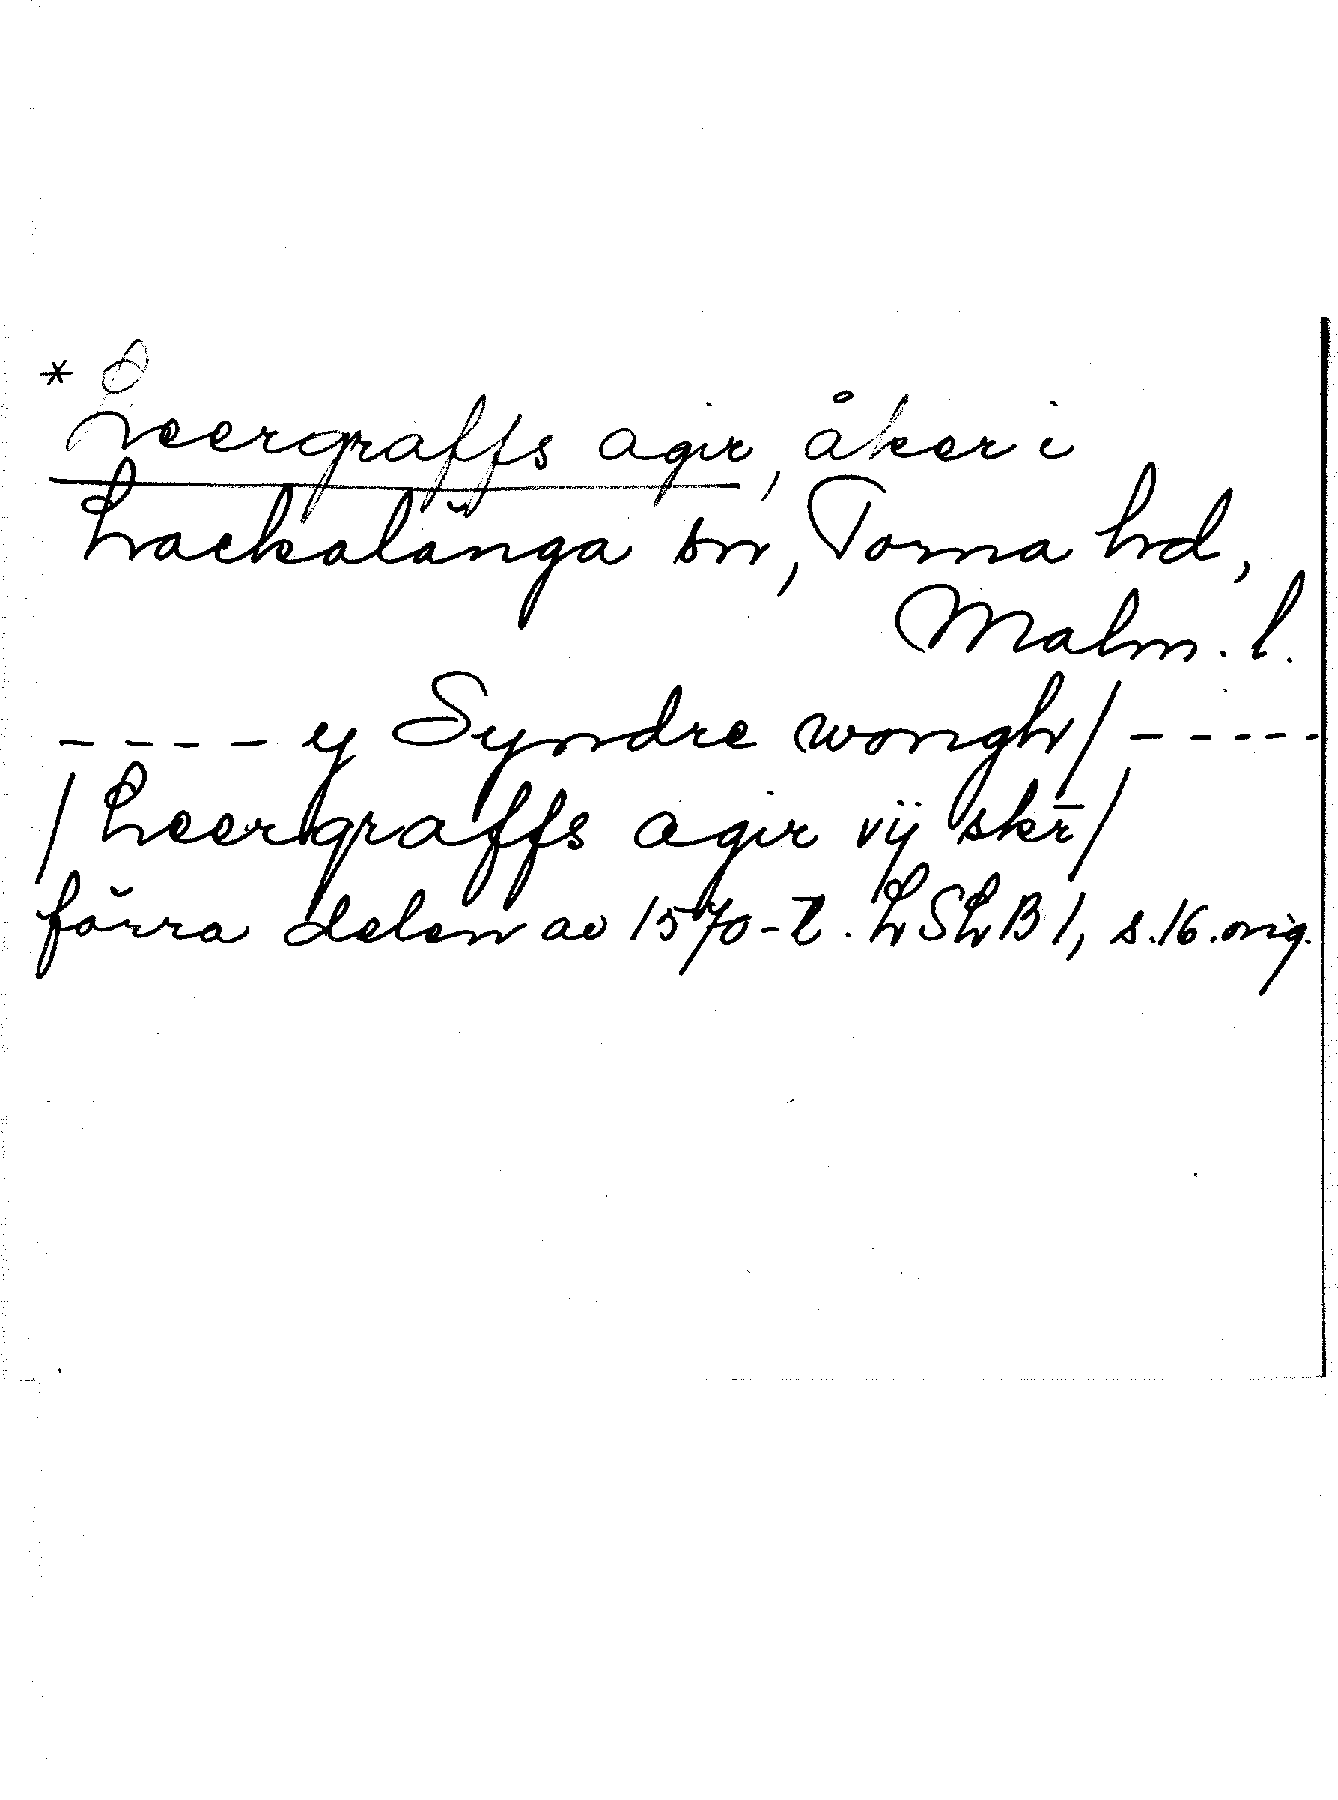 * Leergraffs agir, åker i
Lackalånga sn, Torna hd,
Malm. l.
- - - - y Syndre wongh/ - - - - -
/ Leergraffs agir vij skr̄/
förra delen av 1570-t. LSLB 1, s. 16. orig.